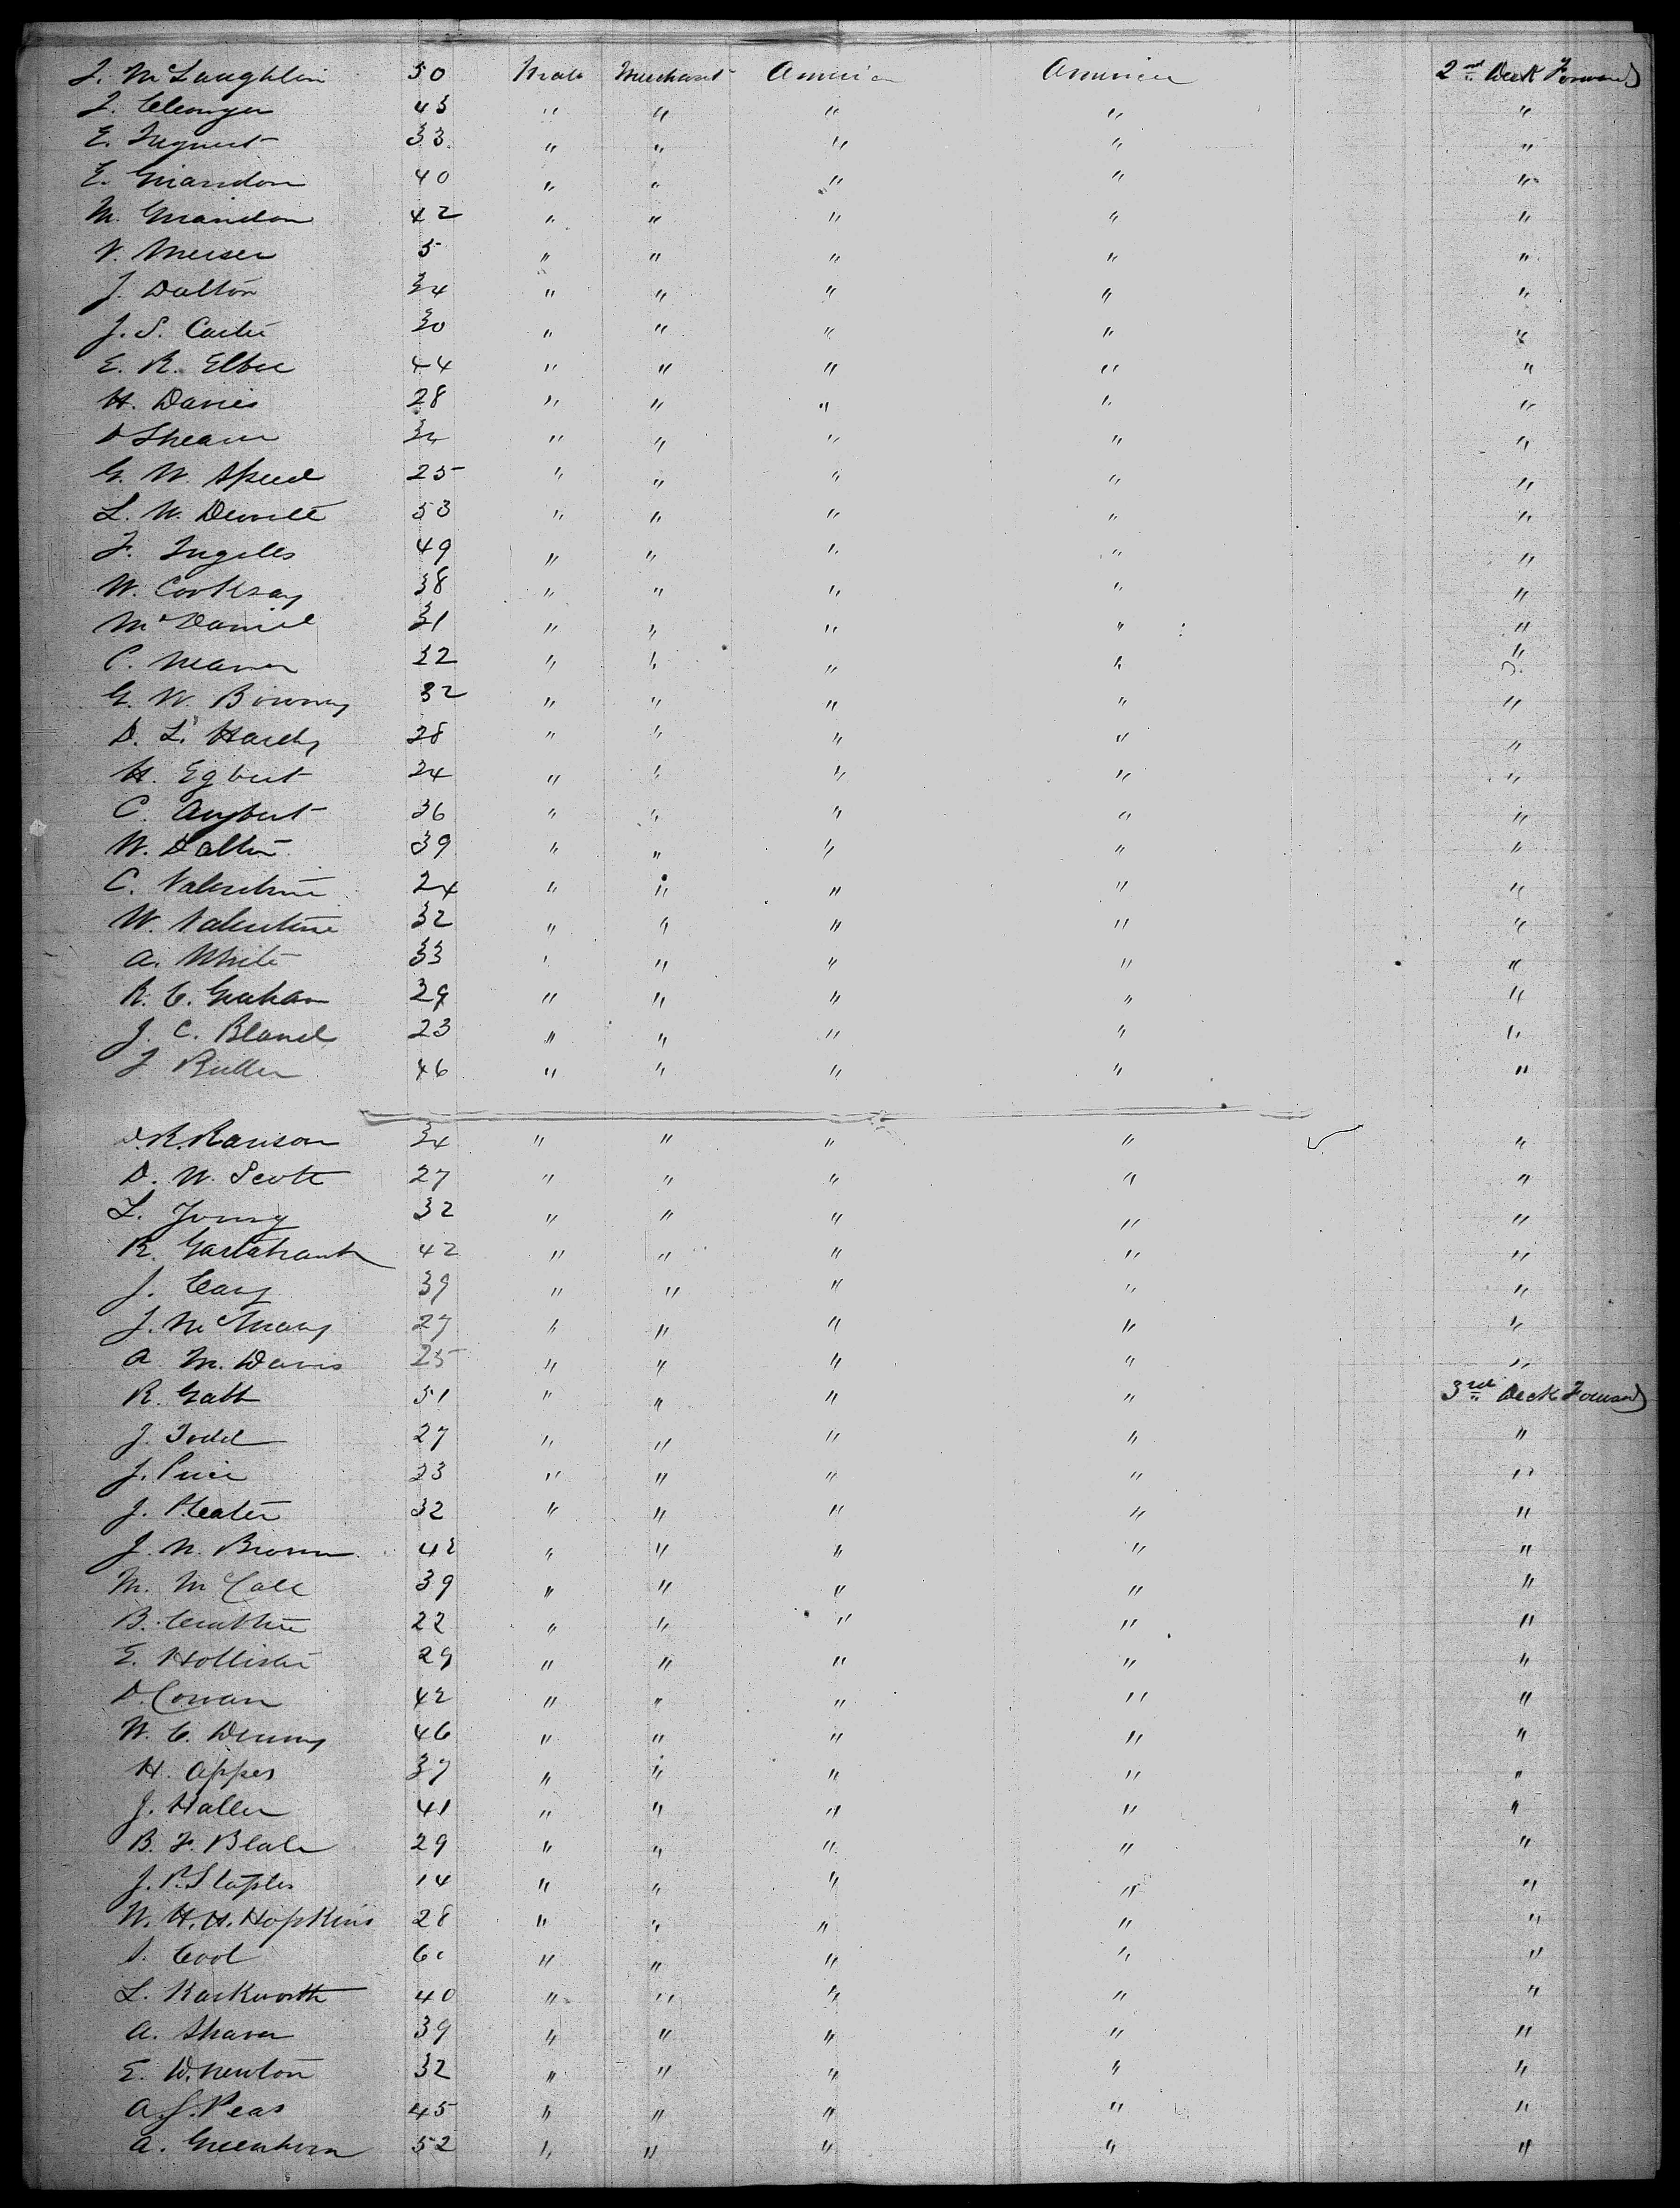 J. McLaughlin 50 Male Merchant America America 2nd Deck Forward
J. Clenger 43 " " " " "
E. 33 " " " " "
E. Griandon 40 " " " " "
M. Griandon 42 " " " " "
V. Meiser 5 " " " " "
J. Dalton 34 " " " " "
J. S. Carter 30 " " " " "
E. R. Elbee 44 " " " " "
H. Davies 28 " " " " "
D Shearer " " " " "
G. W. Speed 25 " " " " "
L. W. Dewitt 53 " " " " "
F. Ingalls 49 " " " " "
W. Cooksay 38 " " " " "
McDaniel 31 " " " " "
C. Weaver 32 " " " " "
G. W. Browny 32 " " " " "
D. L. Hardy 28 " " " " "
H. Egbert 24 " " " " "
C. 36 " " " " "
W. Dalton 39 " " " " "
C. Valentine 24 " " " " "
W. Valentine 32 " " " " "
A. White 33 " " " " "
R. C. Graham 29 " " " " "
J. C. Bland 23 " " " " "
J Butler 46 " " " " "
D. R. Ranson 34 " " " " "
D. W. Scott 27 " " " " "
L. Young 32 " " " " "
R. 42 " " " " "
J. Cary 39 " " " " "
J. 27 " " " " "
A. M. Davis 25 " " " " "
R. Galt 51 " " " " 3rd Deck Forward
J. Todd 27 " " " " "
J. Price 23 " " " " "
J. Heater 32 " " " " "
J. N. Brown 42 " " " " "
M. McCall 39 " " " " "
B. 22 " " " " "
E. Hollister 29 " " " " "
D. Cowan 42 " " " " "
W. C. Denny 46 " " " " "
H. Appes 37 " " " " "
J. Haller 41 " " " " "
B. F. Blake 29 " " " " "
J. P. Staples 14 " " " " "
W. H. H. Hopkins 28 " " " " "
S. Cool 60 " " " " "
L. Karkworth 40 " " " " "
A. Shaver 39 " " " " "
E. W. Newton 32 " " " " "
A. J. Peas 45 " " " " "
A. Greenhorn 52 " " " " "